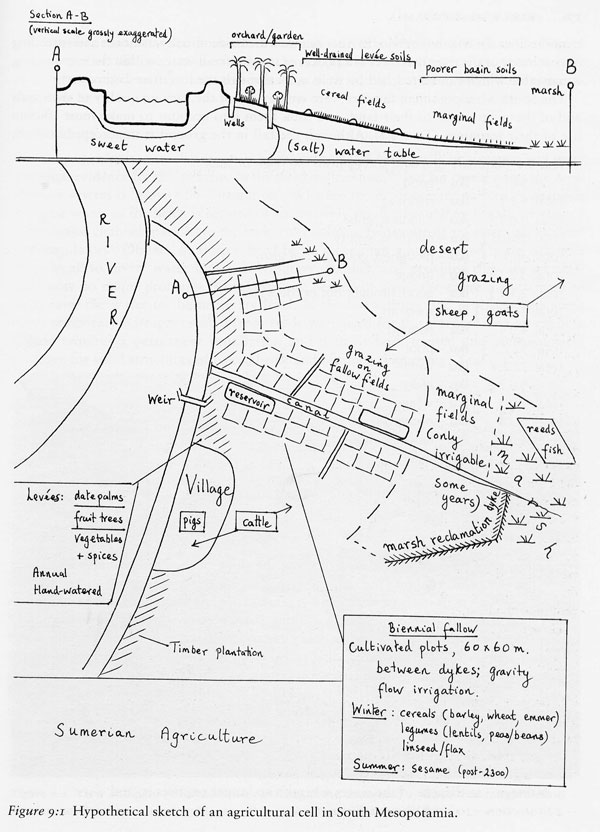 Section A-B
(vertical scale grossly exaggerated)
A
orchard/garden
well-drained levée soils
poorer basin soils
B
marsh
cereal fields
marginal fields
wells
sweet water
(salt) water table
RIVER
desert
grazing
sheep, goats
A
B
grazing
on
fallow fields
Weir
reservoir
canal
marginal
fields
(only
irrigable
some
years)
marsh
reeds
fish
marsh reclamation dyke
Village
pigs
cattle
Levées: date palms
fruit trees
vegetables
+ spices
Annual
Hand-watered
Timber plantation
Biennial fallow
Cultivated plots, 60 x 60 m.
between dykes; gravity
flow irrigation.
Winter: cereals (barley, wheat, emmer)
legumes (lentils, peas/beans)
linseed/flax
Summer: sesame (post-2300)
Sumerian Agriculture
Figure 9:1 Hypothetical sketch of an agricultural cell in South Mesopotamia.